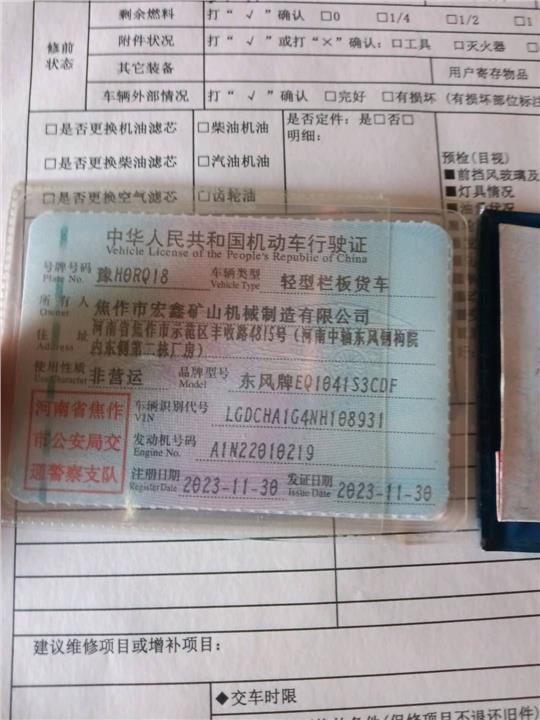 剩余燃料 打“√”确认 □0 □1/4 □1/2 □1
修前状态
附件状况 打“√”或打“×”确认：□工具 □灭火器
其它装备 用户寄存物品
车辆外部情况 打“√”确认 □完好 □有损坏（有损坏部位标注
□是否更换机油滤芯 □柴油机油 是否定件：是□否□
明细：
□是否更换柴油滤芯 □汽油机油 预检(目视)
■前挡风玻璃及
□是否更换空气滤芯 □齿轮油 ■灯具情况
中华人民共和国机动车行驶证
Vehicle License of the People's Republic of China
号牌号码 Plate No. 豫H0RQ18 车辆类型 Vehicle Type 轻型栏板货车
所有人 Owner 焦作市宏鑫矿山机械制造有限公司
住址 Address 河南省焦作市示范区丰收路4815号（河南中轴东风钢构院
内东侧第二栋厂房）
使用性质 Use Character 非营运 品牌型号 Model 东风牌EQ1041S3CDF
河南省焦作
市公安局交
通警察支队
车辆识别代号 VIN LGDCHA1G4NH108931
发动机号码 Engine No. A1N22010219
注册日期 Register Date 2023-11-30 发证日期 Issue Date 2023-11-30
建议维修项目或增补项目：
◆交车时限